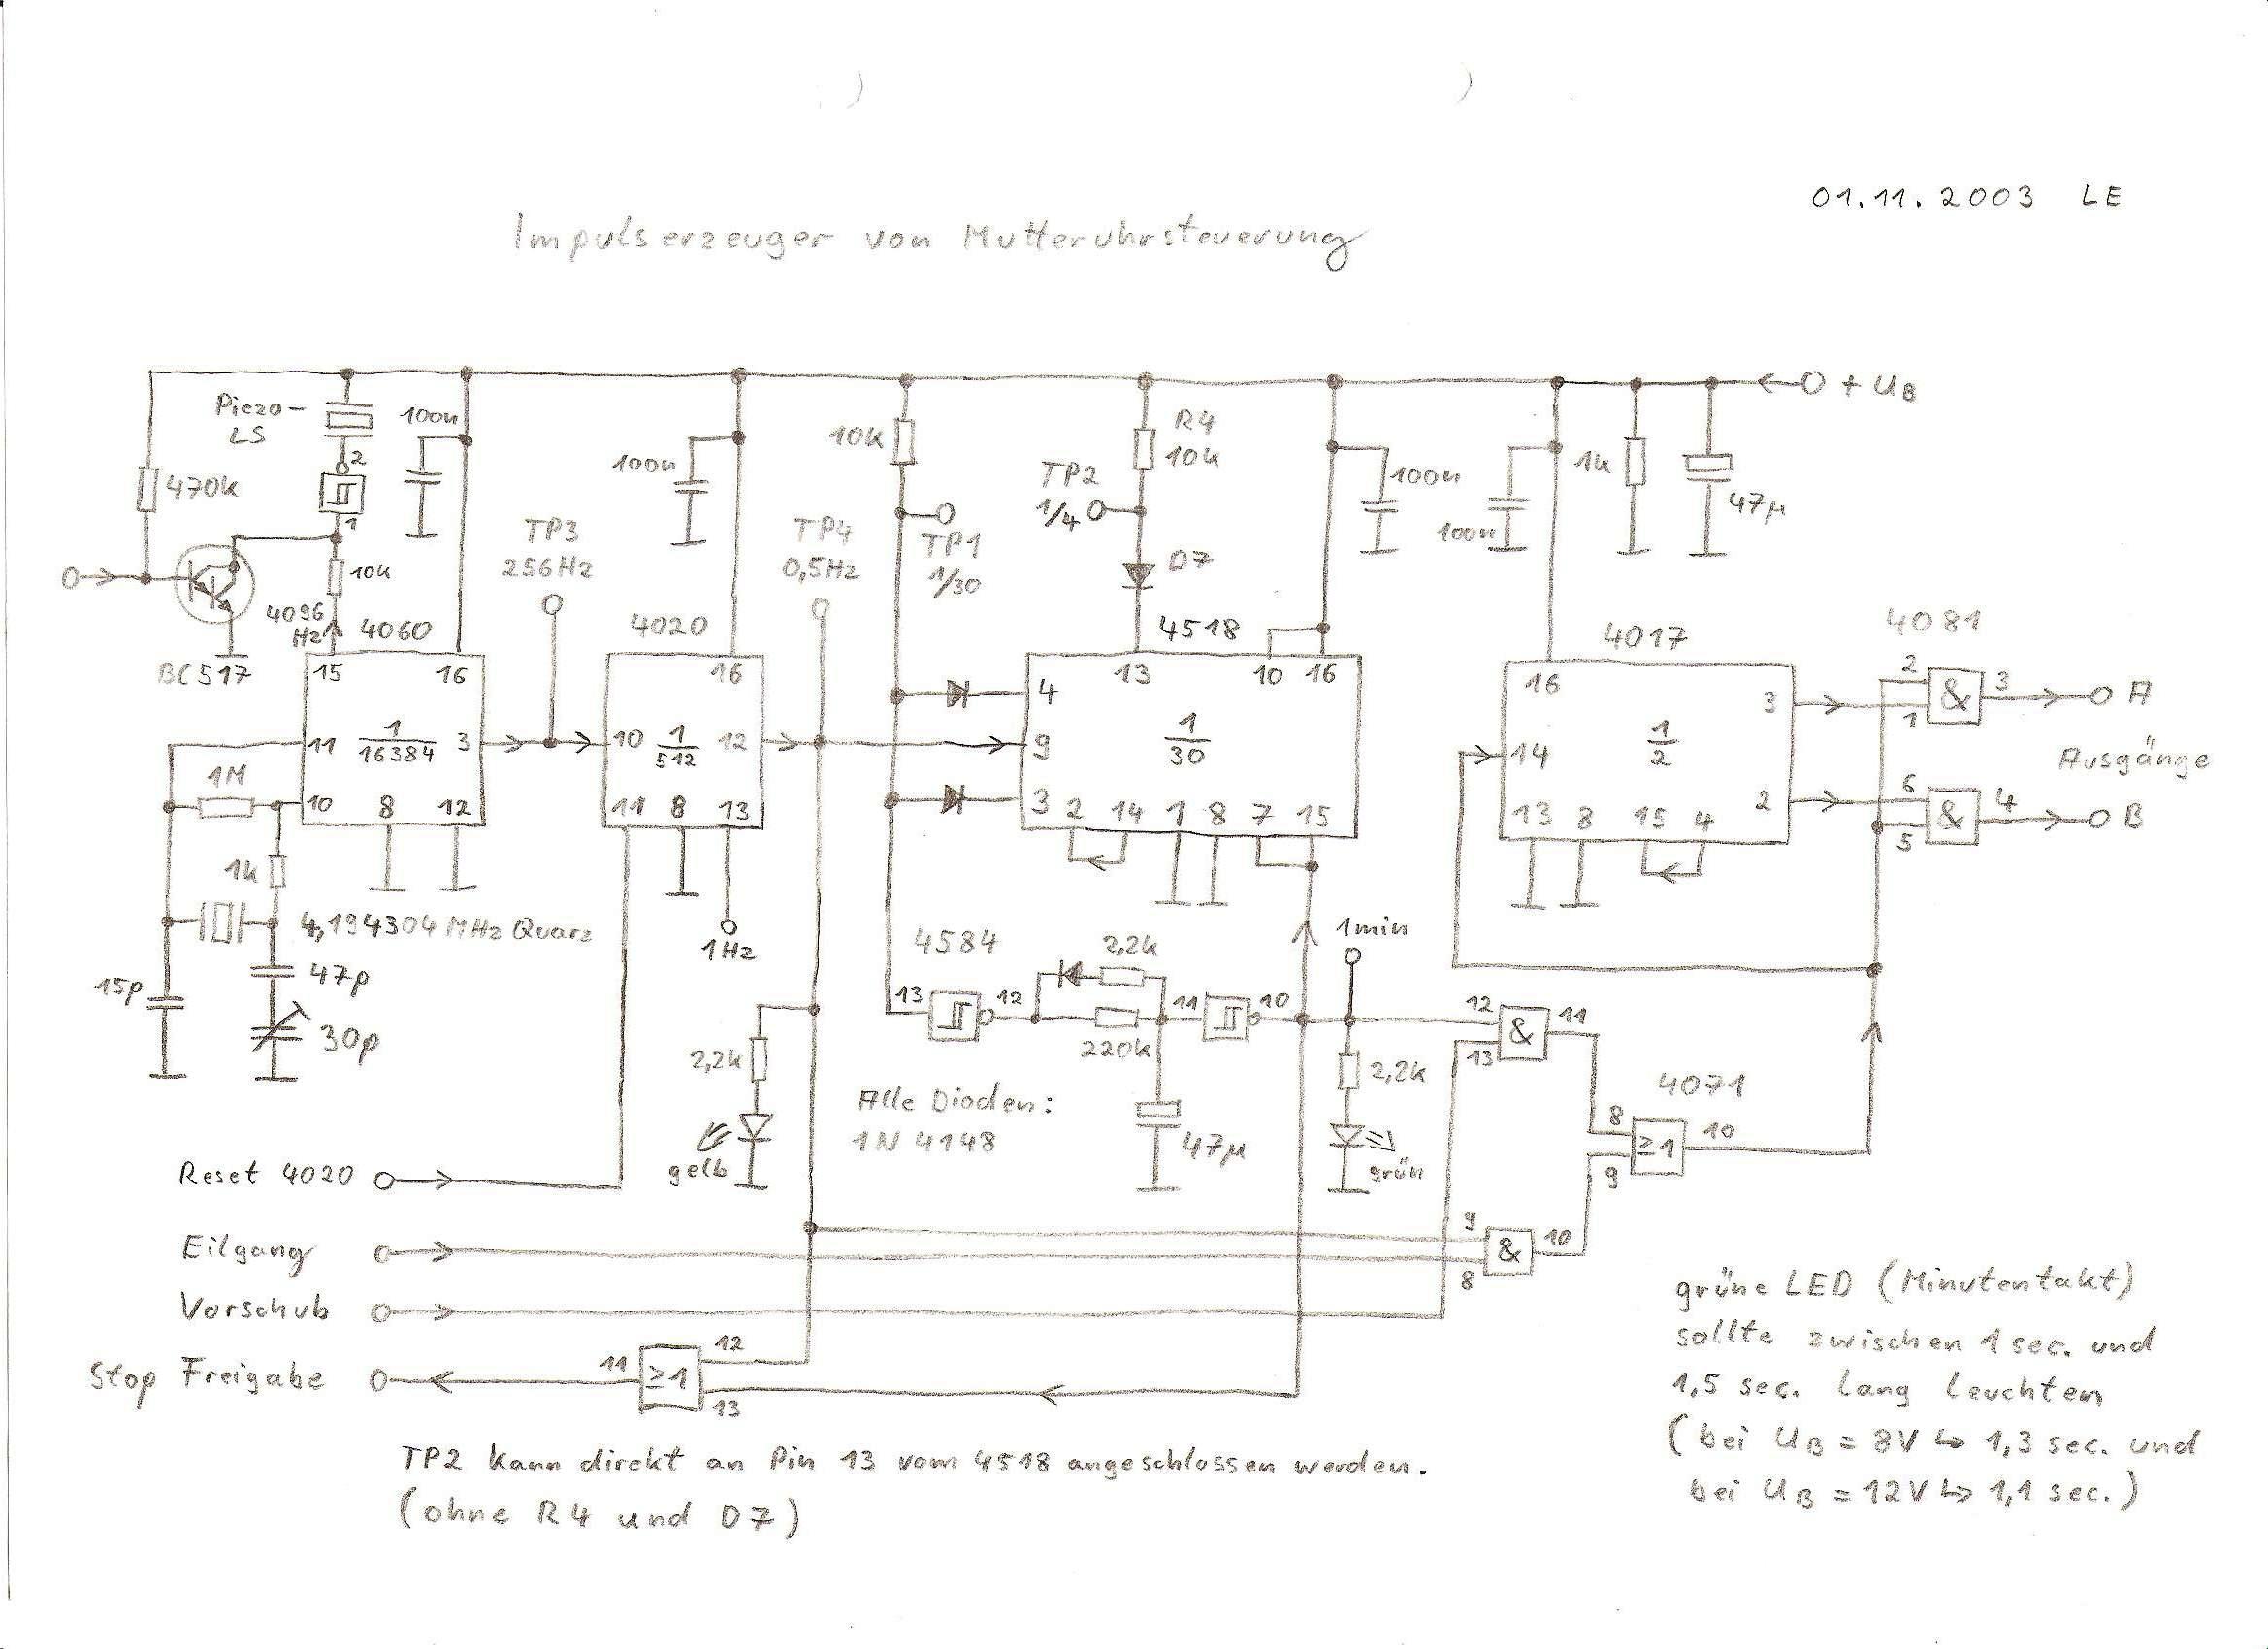 01.11.2003 LE
Impulserzeuger von Mutteruhrsteuerung
+ UB
Piezo-
LS
100n
470k
2
1
10k
4096
Hz
BC517
4060
15
16
11
1/16384
3
10
8
12
1M
1k
4,194304 MHz Quarz
15p
47p
30p
TP3
256Hz
100n
4020
16
10
1/512
12
11
8
13
1Hz
TP4
0,5Hz
10k
TP1
1/30
R4
10k
TP2
1/4
D7
100n
4518
13
10
16
4
9
1/30
3
2
14
1
8
7
15
100n
1k
47µ
4017
16
3
14
1/2
2
13
8
15
4
4081
2
&
3
A
1
Ausgänge
6
&
4
B
5
4584
13
12
2,2k
220k
11
10
47µ
1min
2,2k
grün
2,2k
gelb
Alle Dioden:
1N4148
12
&
11
13
4071
8
≥1
10
9
9
&
10
8
Reset 4020
Eilgang
Vorschub
Stop Freigabe
11
≥1
12
13
TP2 kann direkt an Pin 13 vom 4518 angeschlossen werden.
(ohne R4 und D7)
grüne LED (Minutentakt)
sollte zwischen 1 sec. und
1,5 sec. lang leuchten
(bei UB = 8V ↳ 1,3 sec. und
bei UB = 12V ↳ 1,1 sec.)